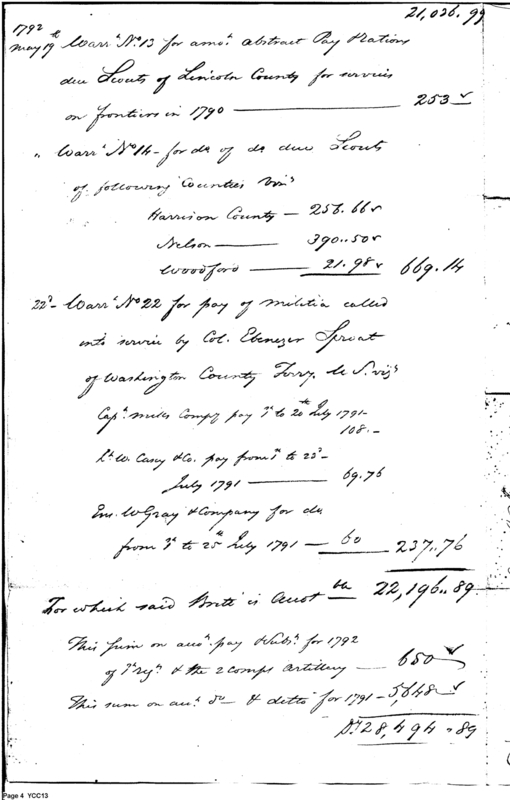 21,036.99
1792
May 19th Warrt No. 13 for amot. abstract Pay Rations
due Scouts of Lincoln County for services
on frontiers in 1790 — 253
" Warrt No 14 - for do of do due Scouts
of following Counties Vizt
Harrison County — 256.66
Nelson — 390..50
Woodford — 21.98 669.14
22d - Warrt No 22 for pay of militia called
into service by Col. Ebenezer Sproat
of Washington County Terry. U S. vizt
Capt. Mills Compy pay to 20th July 1791 -
108.-
Lt. W. Casey & Co. pay from to 23d -
July 1791 — 69.76
Ens. W Gray & Company for do
from 3d to 25th July 1791 — 60 237..76
For which said is 22,196..89
This sum on auct. pay & Subs. for 1792
of & the 2 Comps Artillery — 650
This sum on do — & ditto for 1791 - 5,648
Drs 28,494 .. 89
Page 4 YCC13